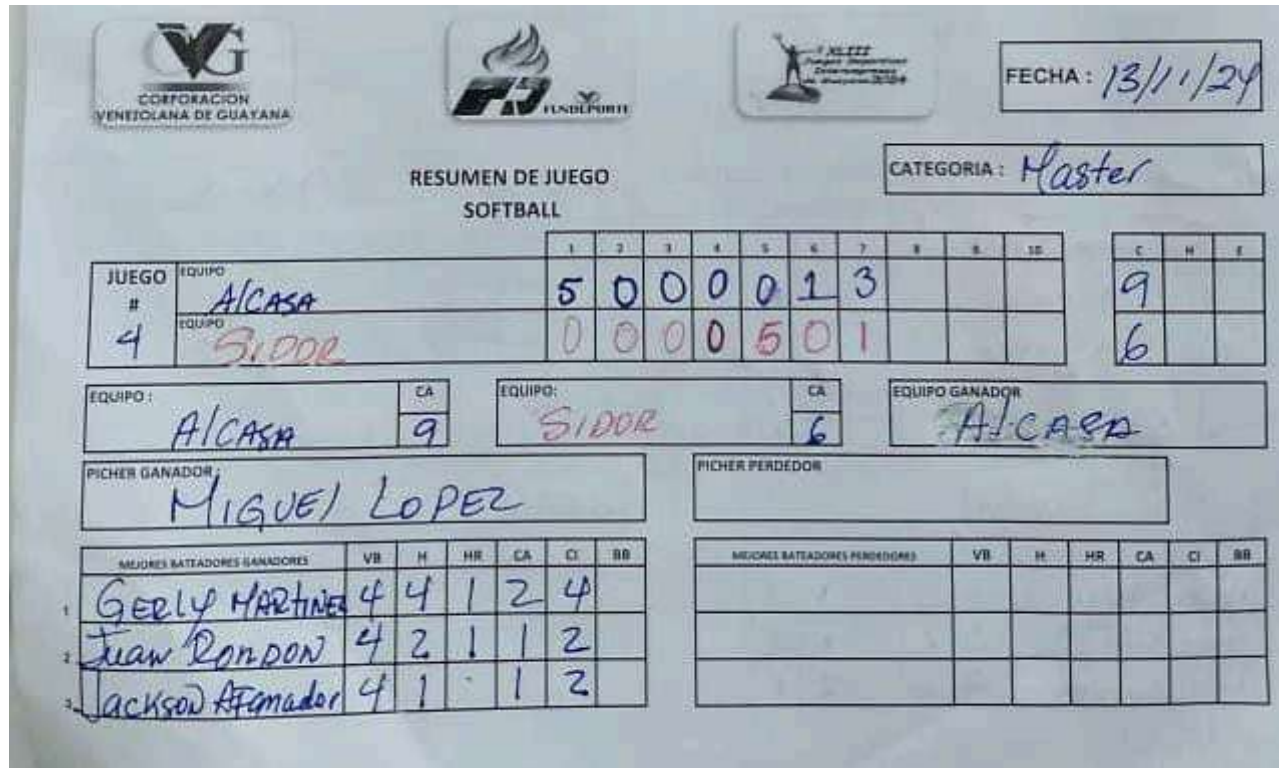 CVG
CORPORACION
VENEZOLANA DE GUAYANA
FUNDEPORTE
XLIII
Juegos Deportivos
Interempresas
de Guayana 2024
FECHA : 13/11/24
CATEGORIA : Master
RESUMEN DE JUEGO
SOFTBALL
1 2 3 4 5 6 7 8 9 10 C H E
JUEGO # 4
EQUIPO AlCASA 5 0 0 0 0 1 3 9
EQUIPO SIDOR 0 0 0 0 5 0 1 6
EQUIPO : AlCASA CA 9
EQUIPO: SIDOR CA 6
EQUIPO GANADOR AlCASA
PICHER GANADOR : MIGUEl LOPEZ
PICHER PERDEDOR
MEJORES BATEADORES GANADORES VB H HR CA CI BB
1 GERLY MARTINEZ 4 4 1 2 4
2 Juan RONDON 4 2 1 1 2
3 JACKSON 4 1 1 2
MEJORES BATEADORES PERDEDORES VB H HR CA CI BB